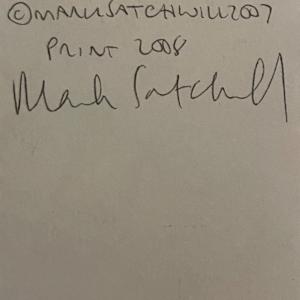 ©MARKSATCHWILL2007
PRINT 2008
Mark Satchwill